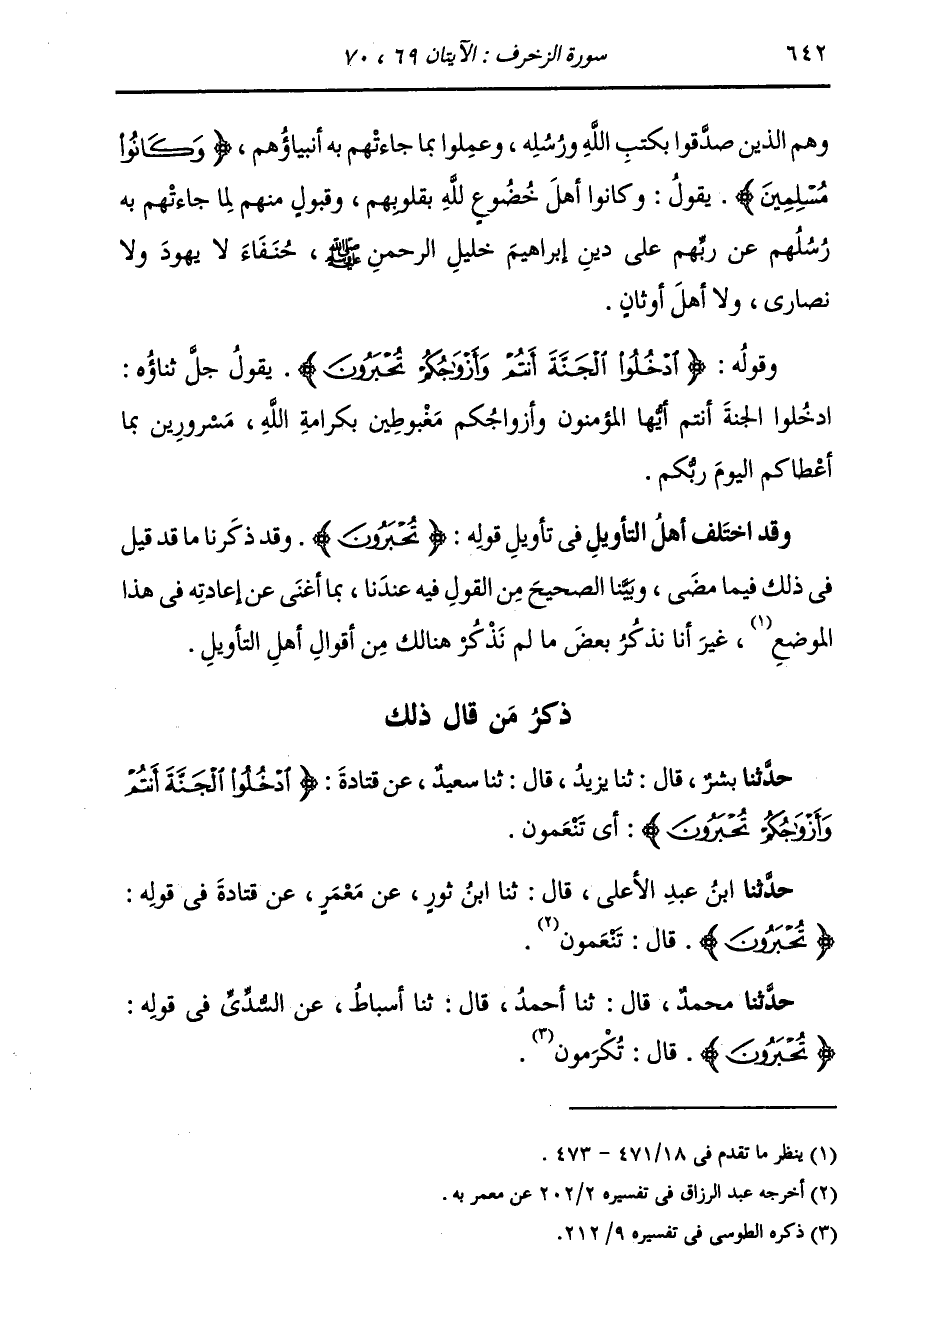 ٦٤٢ سورة الزخرف : الآيتان ٦٩ ، ٧٠
وهم الذين صدَّقوا بكتبِ اللَّهِ ورُسُلِه ، وعمِلوا بما جاءتْهم به أنبياؤُهم ، ﴿ وَكَانُوا۟
مُسْلِمِينَ ﴾ . يقولُ : وكانوا أهلَ خُضُوعٍ للَّهِ بقلوبِهم ، وقبولٍ منهم لِما جاءتْهم به
رُسُلُهم عن ربِّهم على دينِ إبراهيمَ خليلِ الرحمنِ ﷺ ، حُنَفاءَ لا يهودَ ولا
نصارى ، ولا أهلَ أوثانٍ .
وقولُه : ﴿ ٱدْخُلُوا۟ ٱلْجَنَّةَ أَنتُمْ وَأَزْوَٰجُكُمْ تُحْبَرُونَ ﴾ . يقولُ جلَّ ثناؤُه :
ادخُلوا الجنةَ أنتم أيُّها المؤمنون وأزواجُكم مَغْبوطِين بكرامةِ اللَّهِ ، مَسْرورِين بما
أعْطاكم اليومَ ربُّكم .
وقد اختَلف أهلُ التأويلِ فى تأويلِ قولِه : ﴿ تُحْبَرُونَ ﴾ . وقد ذكَرنا ما قد قيل
فى ذلك فيما مضَى ، وبَيَّنا الصحيحَ مِن القولِ فيه عندَنا ، بما أغنَى عن إعادتِه فى هذا
الموضعِ (١) ، غيرَ أنا نذكُرُ بعضَ ما لم نَذْكُرْ هنالك مِن أقوالِ أهلِ التأويلِ .
ذكرُ مَن قال ذلك
حدَّثنا بشرٌ ، قال : ثنا يزيدُ ، قال : ثنا سعيدٌ ، عن قتادةَ : ﴿ ٱدْخُلُوا۟ ٱلْجَنَّةَ أَنتُمْ
وَأَزْوَٰجُكُمْ تُحْبَرُونَ ﴾ : أى تَنْعَمون .
حدَّثنا ابنُ عبدِ الأعلى ، قال : ثنا ابنُ ثورٍ ، عن مَعْمَرٍ ، عن قتادةَ فى قولِه :
﴿ تُحْبَرُونَ ﴾ . قال : تَنْعَمون (٢) .
حدَّثنا محمدٌ ، قال : ثنا أحمدُ ، قال : ثنا أسباطُ ، عن السُّدِّىِّ فى قولِه :
﴿ تُحْبَرُونَ ﴾ . قال : تُكْرَمون (٣) .
(١) ينظر ما تقدم فى ٤٧١/١٨ – ٤٧٣ .
(٢) أخرجه عبد الرزاق فى تفسيره ٢٠٢/٢ عن معمر به .
(٣) ذكره الطوسى فى تفسيره ٩/ ٢١٢.